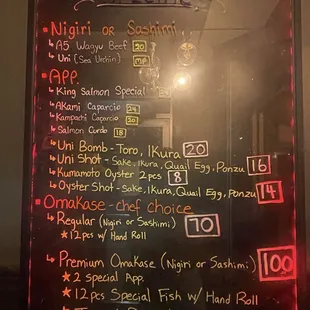 Nigiri or Sashimi
A5 Wagyu Beef 20
Uni (Sea Urchin) MP
APP.
King Salmon Special
Akami Caparcio 24
Kampachi Caparcio 20
Salmon Cordo 18
Uni Bomb - Toro, Ikura 20
Uni Shot - Sake, Ikura, Quail Egg, Ponzu 16
Kumamoto Oyster 2pcs 8
Oyster Shot - Sake, Ikura, Quail Egg, Ponzu 14
Omakase - chef choice
Regular (Nigiri or Sashimi) 70
12pcs w/ Hand Roll
Premium Omakase (Nigiri or Sashimi) 100
2 Special App.
12pcs Special Fish w/ Hand Roll